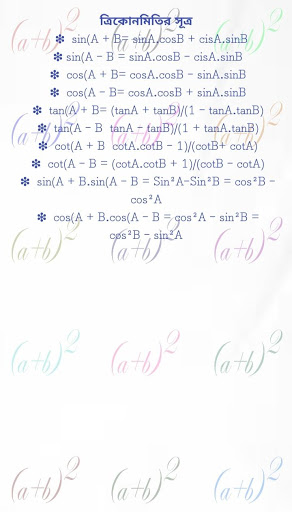 ত্রিকোনমিতির সূত্র
❃ sin(A + B= sinA.cosB + cisA.sinB
❃ sin(A - B = sinA.cosB - cisA.sinB
❃ cos(A + B= cosA.cosB - sinA.sinB
❃ cos(A - B= cosA.cosB + sinA.sinB
❃ tan(A + B= (tanA + tanB)/(1 - tanA.tanB)
❃ tan(A - B tanA - tanB)/(1 + tanA.tanB)
❃ cot(A + B cotA.cotB - 1)/(cotB+ cotA)
❃ cot(A - B = (cotA.cotB + 1)/(cotB - cotA)
❃ sin(A + B.sin(A - B = Sin²A-Sin²B = cos²B -
cos²A
❃ cos(A + B.cos(A - B = cos²A - sin²B =
cos²B - sin²A
(a+b)² (a+b)² (a+b)²
(a+b)² (a+b)² (a+b)²
(a+b)² (a+b)² (a+b)²
(a+b)² (a+b)² (a+b)²
(a+b)² (a+b)² (a+b)²